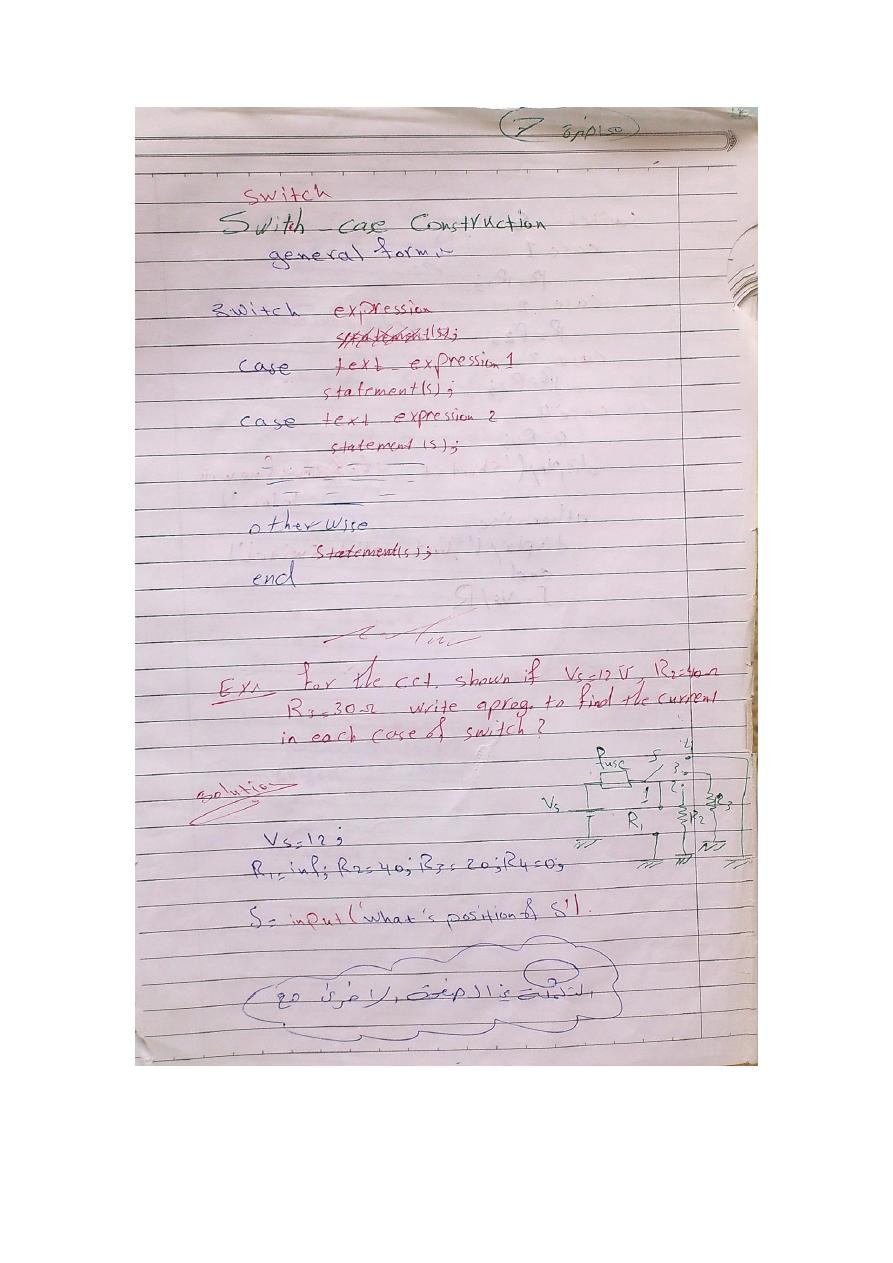 محاضرة 7
switch
Switch-case Construction
general form:-
switch expression
statement(s);
case text expression 1
statement(s);
case text expression 2
statement(s);
otherwise
statement(s);
end
Ex:- For the cct. shown if Vs=12 V, R2=40Ω
R3=30Ω write aprog. to find the current
in each case of switch?
solution
fuse S 4
3
Vs 1 2
R1 R2 R3
Vs=12;
R1=inf; R2=40; R3=20; R4=0;
S=input('what's position of S').
التكملة في الصفحة الاخرى